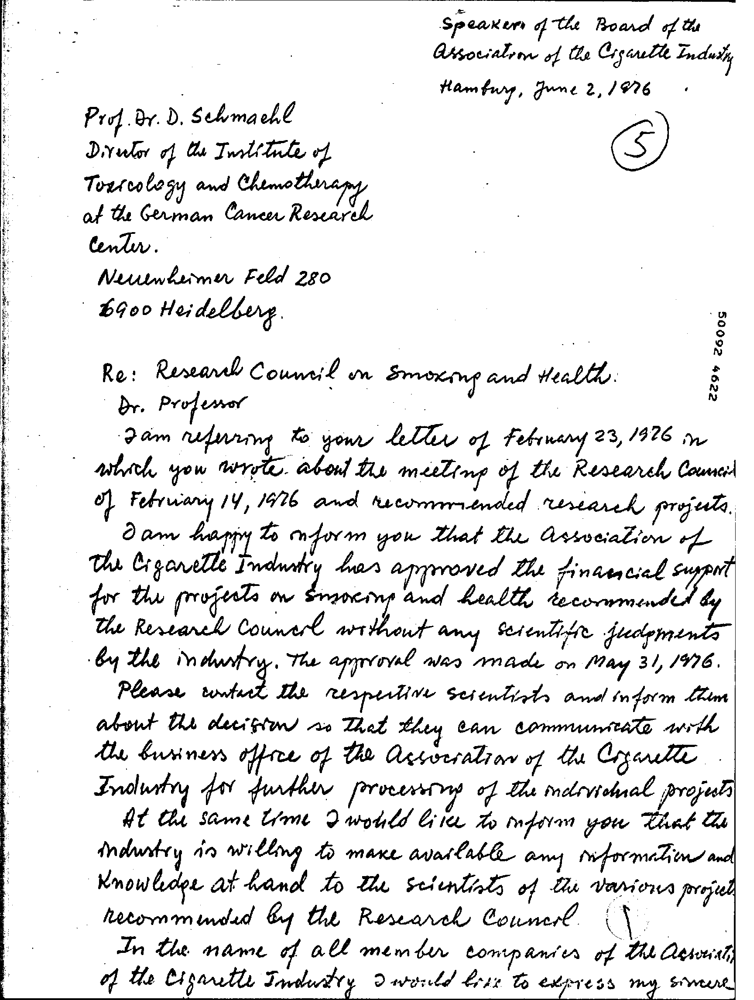 Speakers of the Board of the
Association of the Cigarette Industry
Hamburg, June 2, 1976
5
Prof. Dr. D. Schmaehl
Director of the Institute of
Toxicology and Chemotherapy
at the German Cancer Research
Center.
Neuenheimer Feld 280
6900 Heidelberg.
50092 4622
Re: Research Council on Smoking and Health.
Dr. Professor
I am referring to your letter of February 23, 1976 in
which you wrote about the meeting of the Research Council
of February 14, 1976 and recommended research projects.
I am happy to inform you that the Association of
the Cigarette Industry has approved the financial support
for the projects on Smoking and health recommended by
the Research Council without any scientific judgments
by the industry. The approval was made on May 31, 1976.
Please contact the respective scientists and inform them
about the decision so that they can communicate with
the business office of the Association of the Cigarette
Industry for further processing of the individual projects
At the same time I would like to inform you that the
industry is willing to make available any information and
knowledge at hand to the scientists of the various project
recommended by the Research Council
1
In the name of all member companies of the Associati
of the Cigarette Industry I would like to express my sincere